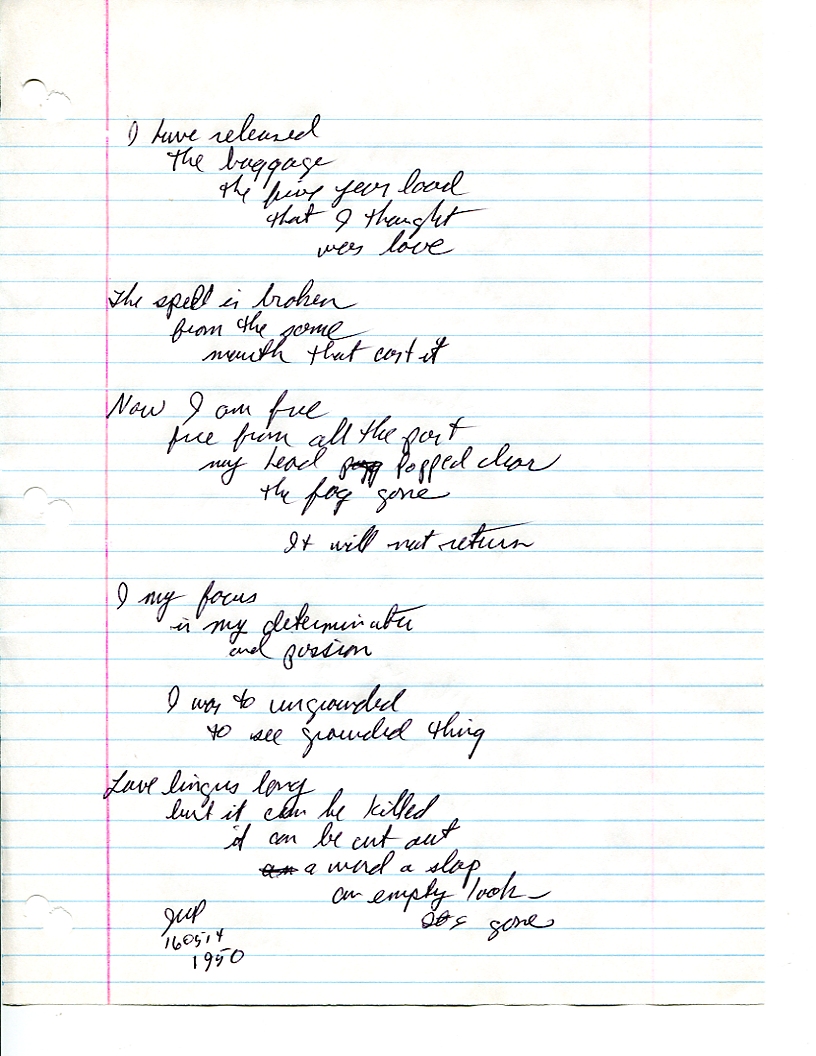 I have released
the baggage
the five year load
that I thought
was love
The spell is broken
from the same
mouth that cast it
Now I am free
free from all the past
my head popped clear
the fog gone
It will not return
I my focus
is my determination
and passion
I was to ungrounded
to see grounded thing
Love lingers long
but it can be killed
it can be cut out
a word a slap
an empty look
gone
JWP
160514
1950